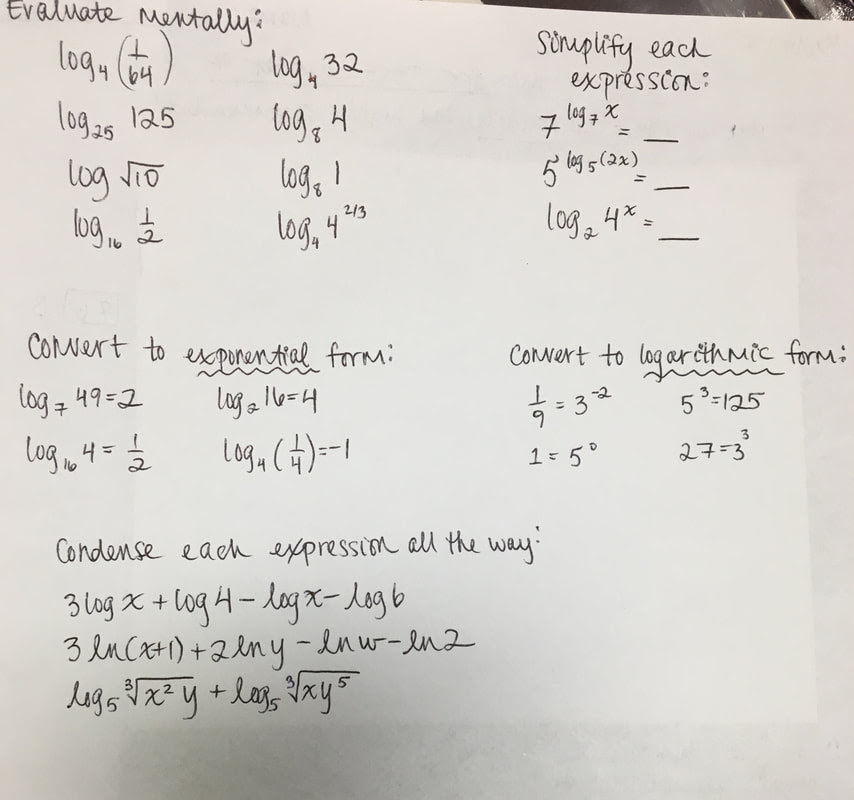 Evaluate Mentally:
log₄(1/64) log₄ 32
log₂₅ 125 log₈ 4
log √10 log₈ 1
log₁₆ 1/2 log₄ 4^2/3
Simplify each
expression:
7^log₇x = __
5^log₅(2x) = __
log₂ 4ˣ = __
Convert to exponential form:
log₇ 49=2 log₂16=4
log₁₆ 4 = 1/2 log₄(1/4)=-1
Convert to logarithmic form:
1/9 = 3⁻² 5³=125
1 = 5⁰ 27=3³
Condense each expression all the way:
3logx + log4 - logx - log6
3 ln(x+1) + 2lny - lnw - ln2
log₅ ∛(x²y) + log₅ ∛(xy⁵)